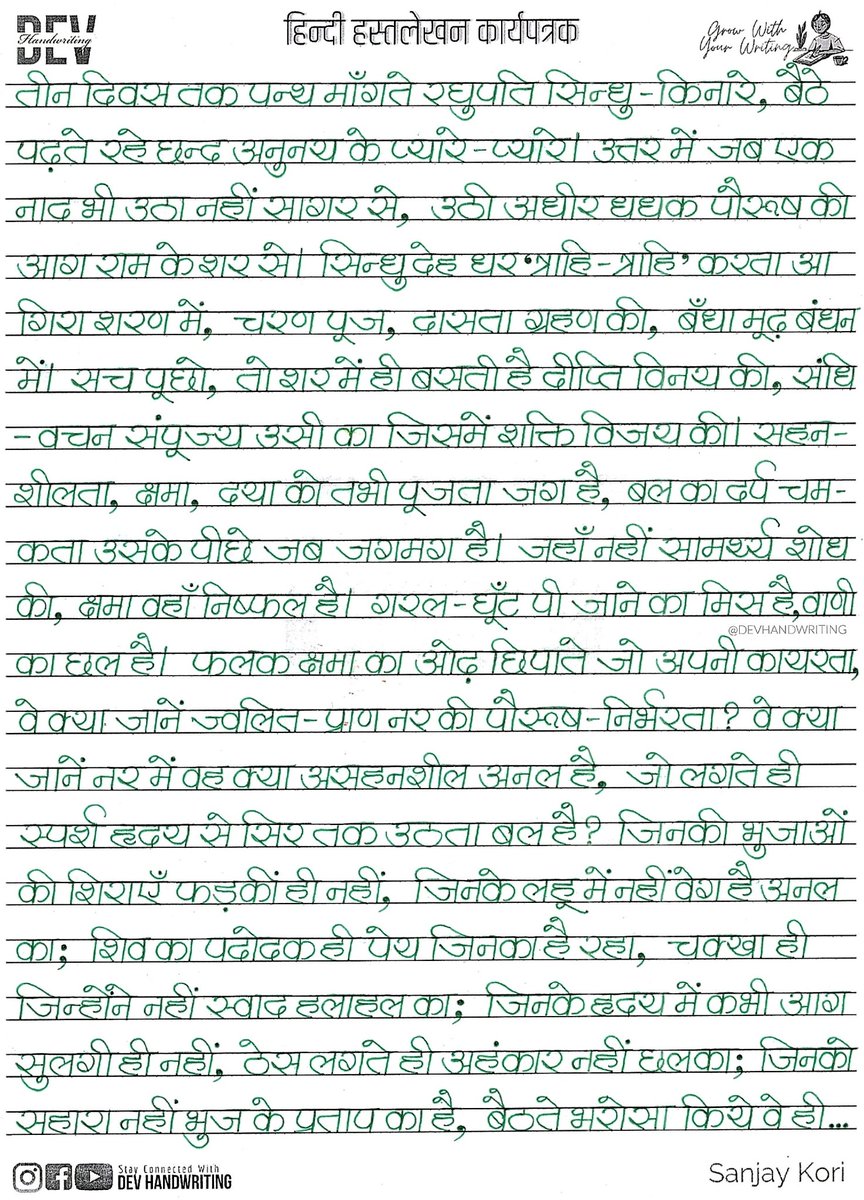 DEV
Handwriting
हिन्दी हस्तलेखन कार्यपत्रक
Grow With
Your Writing
तीन दिवस तक पन्थ माँगते रघुपति सिन्धु-किनारे, बैठे
पढ़ते रहे छन्द अनुनय के प्यारे-प्यारे। उत्तर में जब एक
नाद भी उठा नहीं सागर से, उठी अधीर धधक पौरूष की
आग राम के शर से। सिन्धु देह धर 'त्राहि-त्राहि' करता आ
गिरा शरण में, चरण पूज, दासता ग्रहण की, बँधा मूढ़ बंधन
में। सच पूछो, तो शर में ही बसती है दीप्ति विनय की, संधि
-वचन संपूज्य उसी का जिसमें शक्ति विजय की। सहन-
शीलता, क्षमा, दया को तभी पूजता जग है, बल का दर्प चम-
कता उसके पीछे जब जगमग है। जहाँ नहीं सामर्थ्य शोध
की, क्षमा वहाँ निष्फल है। गरल-घूँट पी जाने का मिस है, वाणी
@DEVHANDWRITING
का छल है। फलक क्षमा का ओढ़ छिपाते जो अपनी कायरता,
वे क्या जानें ज्वलित-प्राण नर की पौरूष-निर्भरता? वे क्या
जानें नर में वह क्या असहनशील अनल है, जो लगते ही
स्पर्श हृदय से सिर तक उठता बल है? जिनकी भुजाओं
की शिराएँ फड़कीं ही नहीं, जिनके लहू में नहीं वेग है अनल
का; शिव का पदोदक ही पेय जिनका है रहा, चक्खा ही
जिन्होंने नहीं स्वाद हलाहल का; जिनके हृदय में कभी आग
सुलगी ही नहीं, ठेस लगते ही अहंकार नहीं छलका; जिनको
सहारा नहीं भुज के प्रताप का है, बैठते भरोसा किये वे ही...
Stay Connected With
DEV HANDWRITING
Sanjay Kori